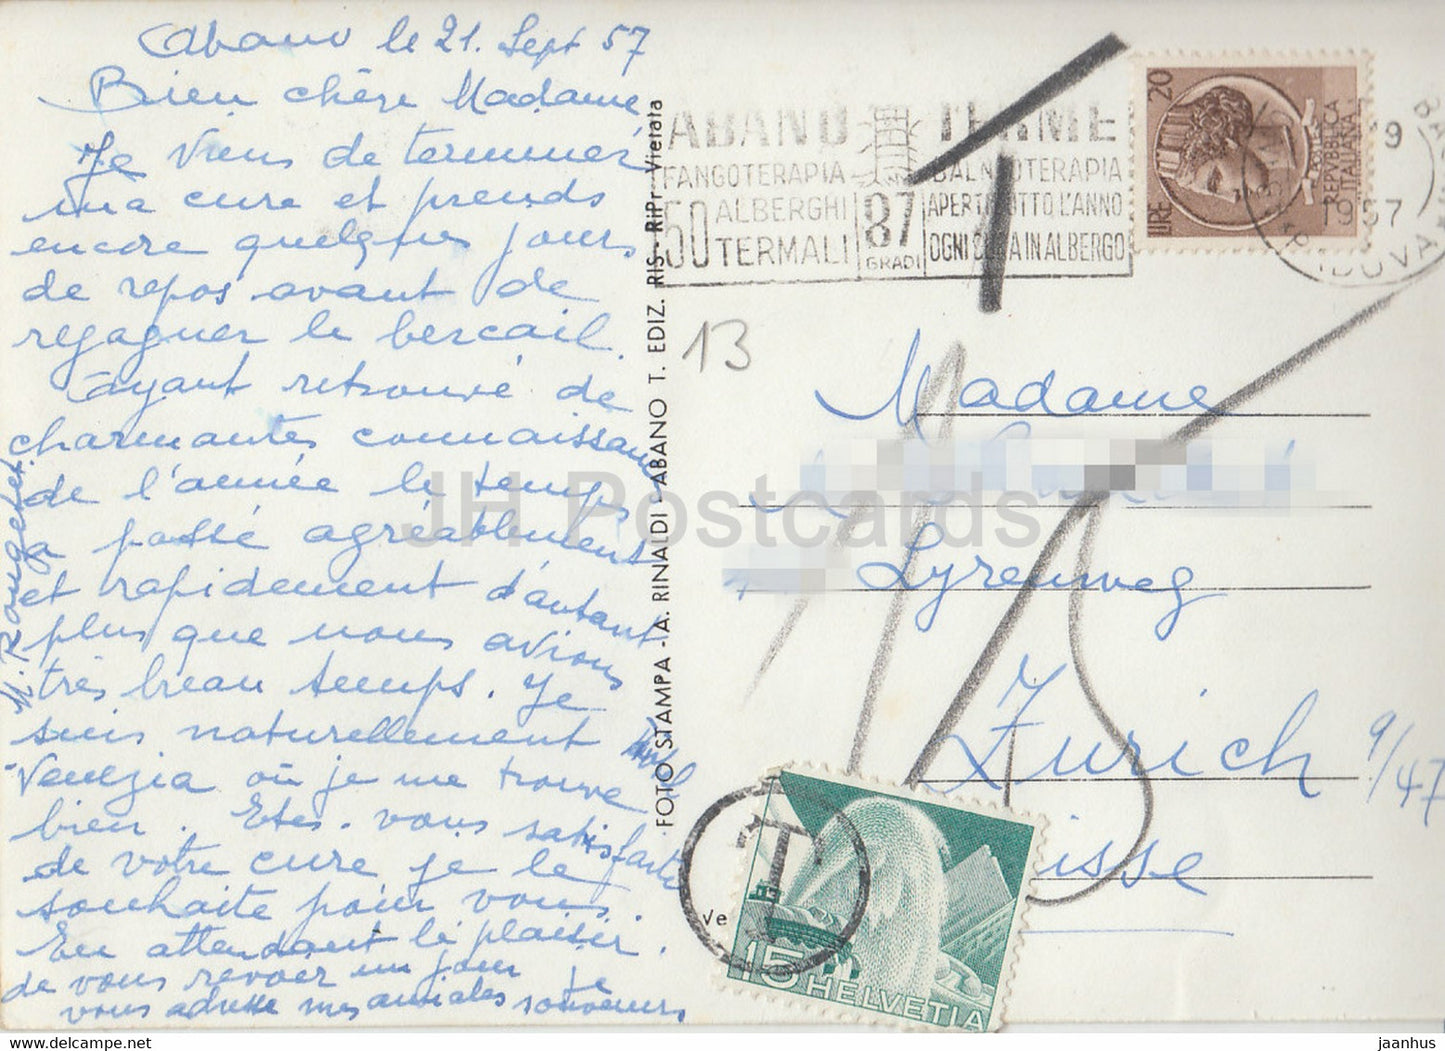 Abano le 21. Sept 57
Bien chère Madame
Je viens de terminer
ma cure et prends
encore quelques jours
de repos avant de
regagner le bercail.
Ayant retrouvé de
charmantes connaissan
de l'année le temps
a passé agréablement
et rapidement d'autant
plus que nous avions
très beau temps. Je
suis naturellement
Venezia où je me trouve
bien. Etes-vous satisfaite
de votre cure je le
souhaite pour vous.
En attendant le plaisir
de vous revoir un jour je
vous adresse mes amicales souvenirs
FOTO STAMPA - A. RINALDI - ABANO T. EDIZ. RIS- RIP. Vietata
ABANO TERME
FANGOTERAPIA BALNEOTERAPIA
50 ALBERGHI TERMALI
87 GRADI
APERTI TUTTO L'ANNO
OGNI CURA IN ALBERGO
LIRE 20
REPVBBLICA
ITALIANA
9
1957
PADOVA
13
Madame
Lyrenweg
Zürich 9/47
isse
T
Ve
15 HELVETIA
JH Postcards
jaanhus ~ delcampe.net